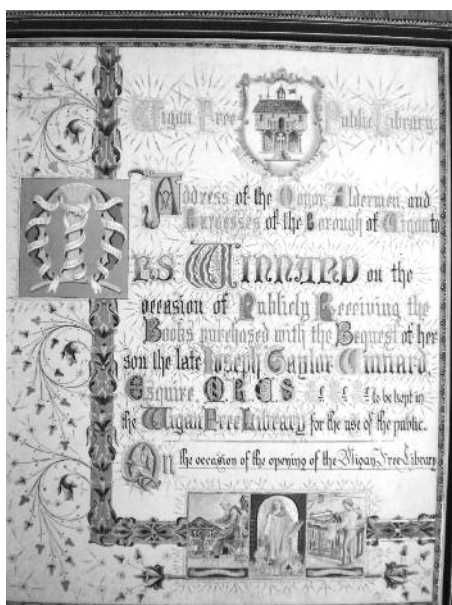 Wigan Free Public Library.
Address of the Mayor, Aldermen, and
Burgesses of the Borough of Wigan to
MRS WINNARD on the
occasion of Publicly Receiving the
Books purchased with the Bequest of her
son the late Joseph Taylor Winnard,
Esquire, M.R.C.S &c &c &c to be kept in
the Wigan Free Library for the use of the public.
On the occasion of the opening of the Wigan Free Library